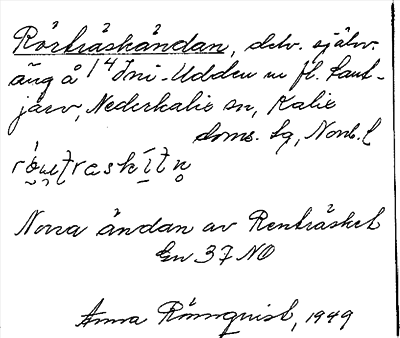 Rörträskändan, delv. själv.
äng å 1/4 Ini-Udden m fl. Laut-
järv, Nederkalix sn, Kalix
doms. lg, Norrb. l
Norra ändan av Renträsket
Gv 37 NO
Anna Rönnquist, 1949